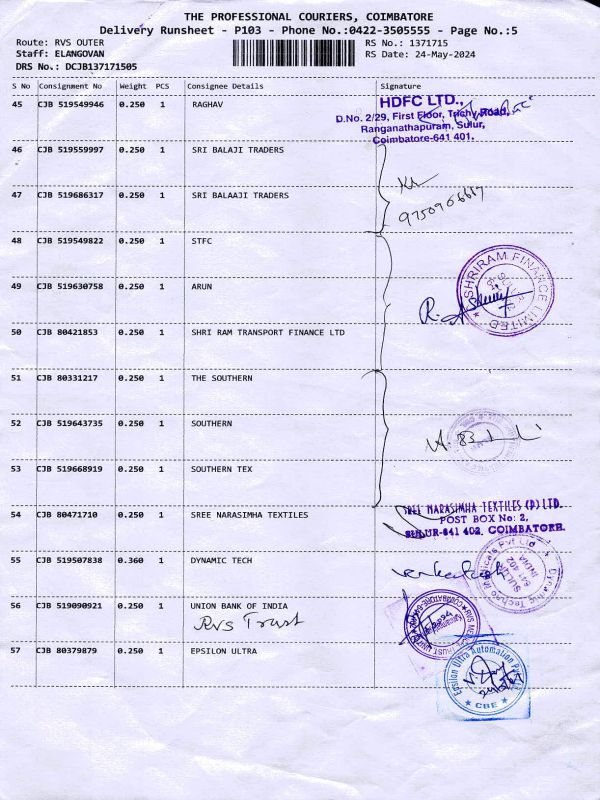 THE PROFESSIONAL COURIERS, COIMBATORE
Delivery Runsheet - P103 - Phone No.:0422-3505555 - Page No.:5
Route: RVS OUTER
Staff: ELANGOVAN
DRS No.: DCJB137171505
RS No.: 1371715
RS Date: 24-May-2024
S No Consignment No Weight PCS Consignee Details Signature
45 CJB 519549946 0.250 1 RAGHAV
HDFC LTD.,
D.No. 2/29, First Floor, Trichy Road,
Ranganathapuram, Sulur,
Coimbatore-641 401.
46 CJB 519559997 0.250 1 SRI BALAJI TRADERS
47 CJB 519686317 0.250 1 SRI BALAAJI TRADERS
48 CJB 519549822 0.250 1 STFC
SHRIRAM FINANCE LIMITED
49 CJB 519630758 0.250 1 ARUN
50 CJB 80421853 0.250 1 SHRI RAM TRANSPORT FINANCE LTD
51 CJB 80331217 0.250 1 THE SOUTHERN
52 CJB 519643735 0.250 1 SOUTHERN
53 CJB 519668919 0.250 1 SOUTHERN TEX
54 CJB 80471710 0.250 1 SREE NARASIMHA TEXTILES
SREE NARASIMHA TEXTILES (P) LTD.
POST BOX No: 2,
SULUR-641 402. COIMBATORE.
55 CJB 519507838 0.360 1 DYNAMIC TECH
venkatesh
SULUR
641 402
INDIA
56 CJB 519090921 0.250 1 UNION BANK OF INDIA
RVS Trust
57 CJB 80379879 0.250 1 EPSILON ULTRA
Epsilon Ultra Automation Pvt
CBE